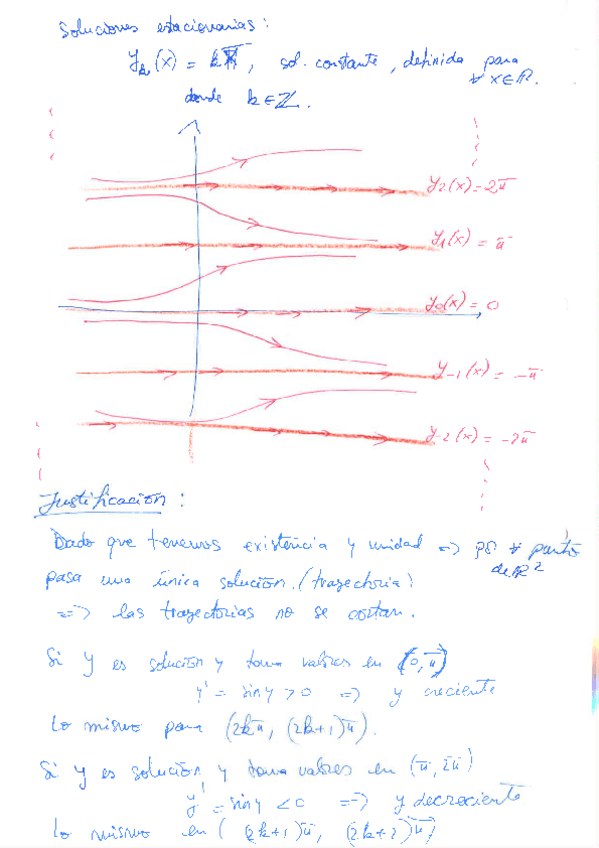 Soluciones estacionarias:
y_k(x) = kπ, sol. constante, definida para
∀ x∈ℝ.
donde k∈ℤ.
y_2(x) = 2π
y_1(x) = π
y_0(x) = 0
y_-1(x) = -π
y_-2(x) = -2π
Justificación:
Dado que tenemos existencia y unidad => ∀ punto
de ℝ²
pasa una única solución. (trayectoria)
==> las trayectorias no se cortan.
Si y es solución y toma valores en (0, π)
y' = sin y > 0 => y creciente
Lo mismo para (2kπ, (2k+1)π).
Si y es solución y toma valores en (π, 2π)
y' = sin y < 0 ==> y decreciente
Lo mismo en ((2k+1)π, (2k+2)π)